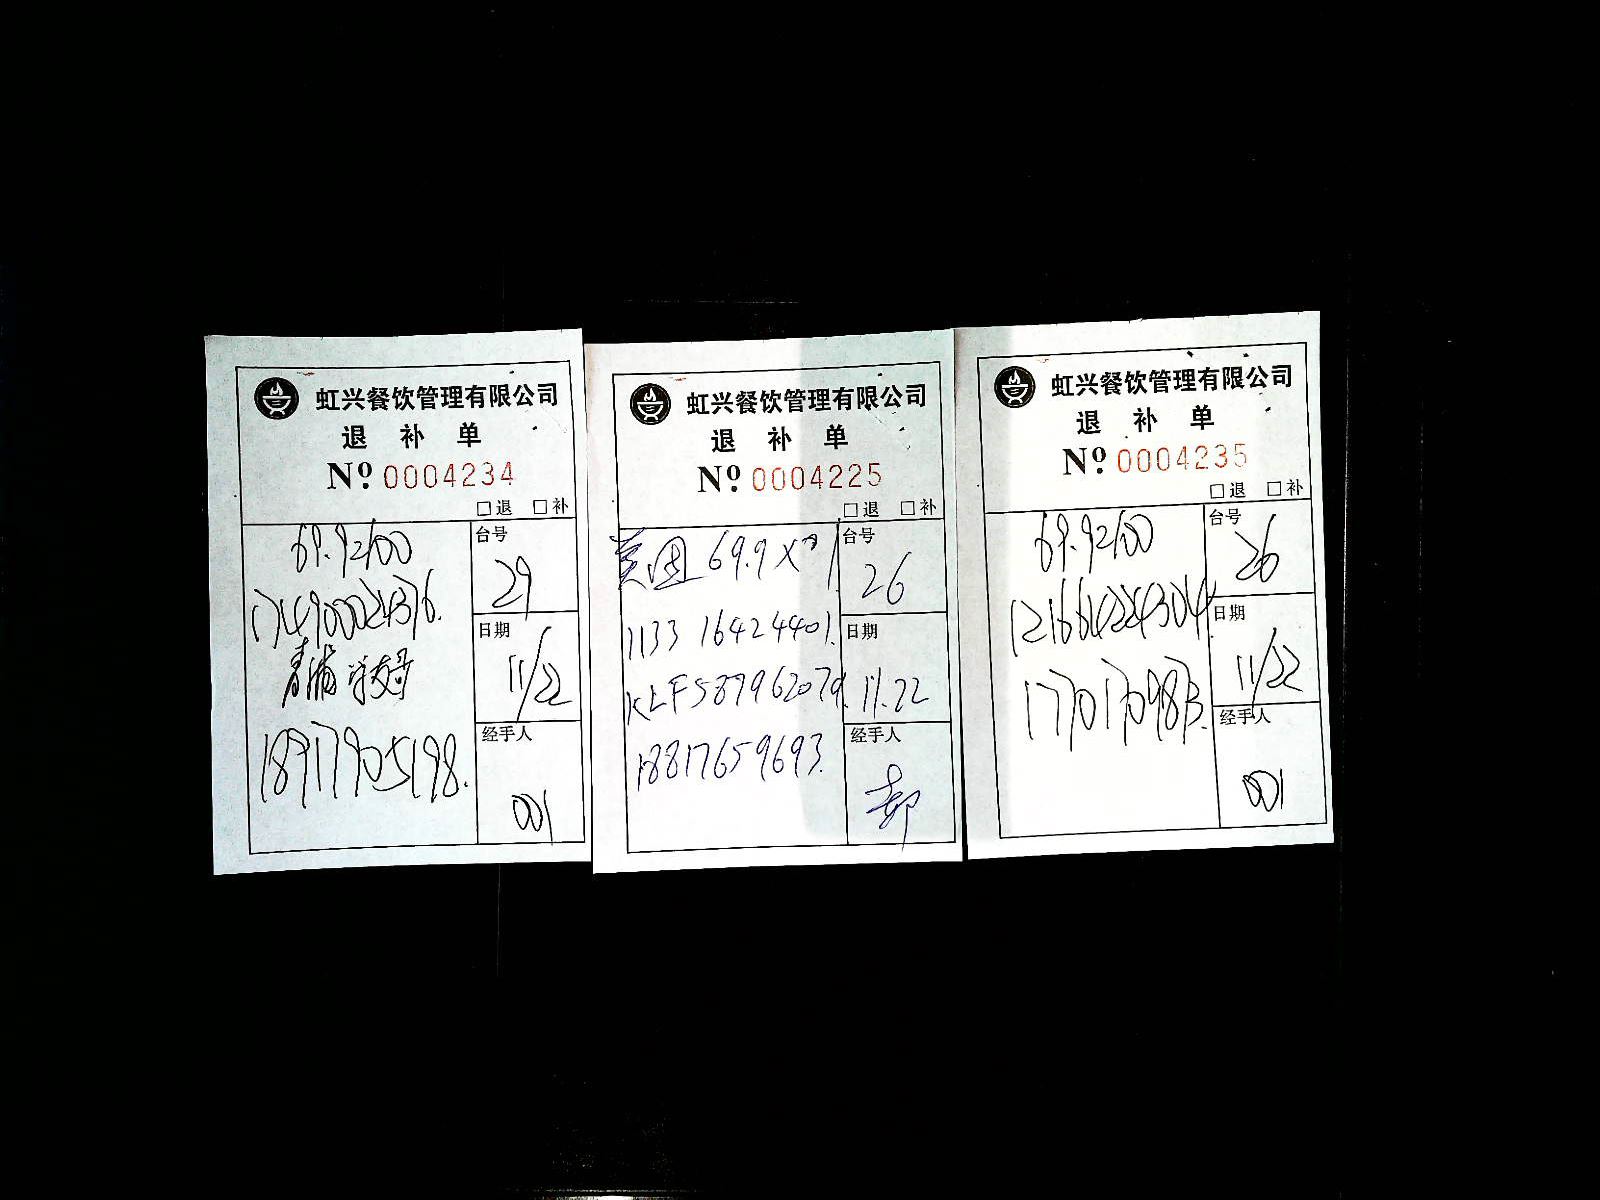 虹兴餐饮管理有限公司
退 补 单
Nº 0004234
□退 □补
69.92100
台号
29
日期
11/22
18917905198.
经手人
001
虹兴餐饮管理有限公司
退 补 单
Nº 0004225
□退 □补
美团 69.9X
台号
26
1133 16424401.
日期
11.22
KLF587962079.
18817659693.
经手人
郝
虹兴餐饮管理有限公司
退 补 单
Nº 0004235
□退 □补
69.92100
台号
26
121664224304
日期
11/22
经手人
001